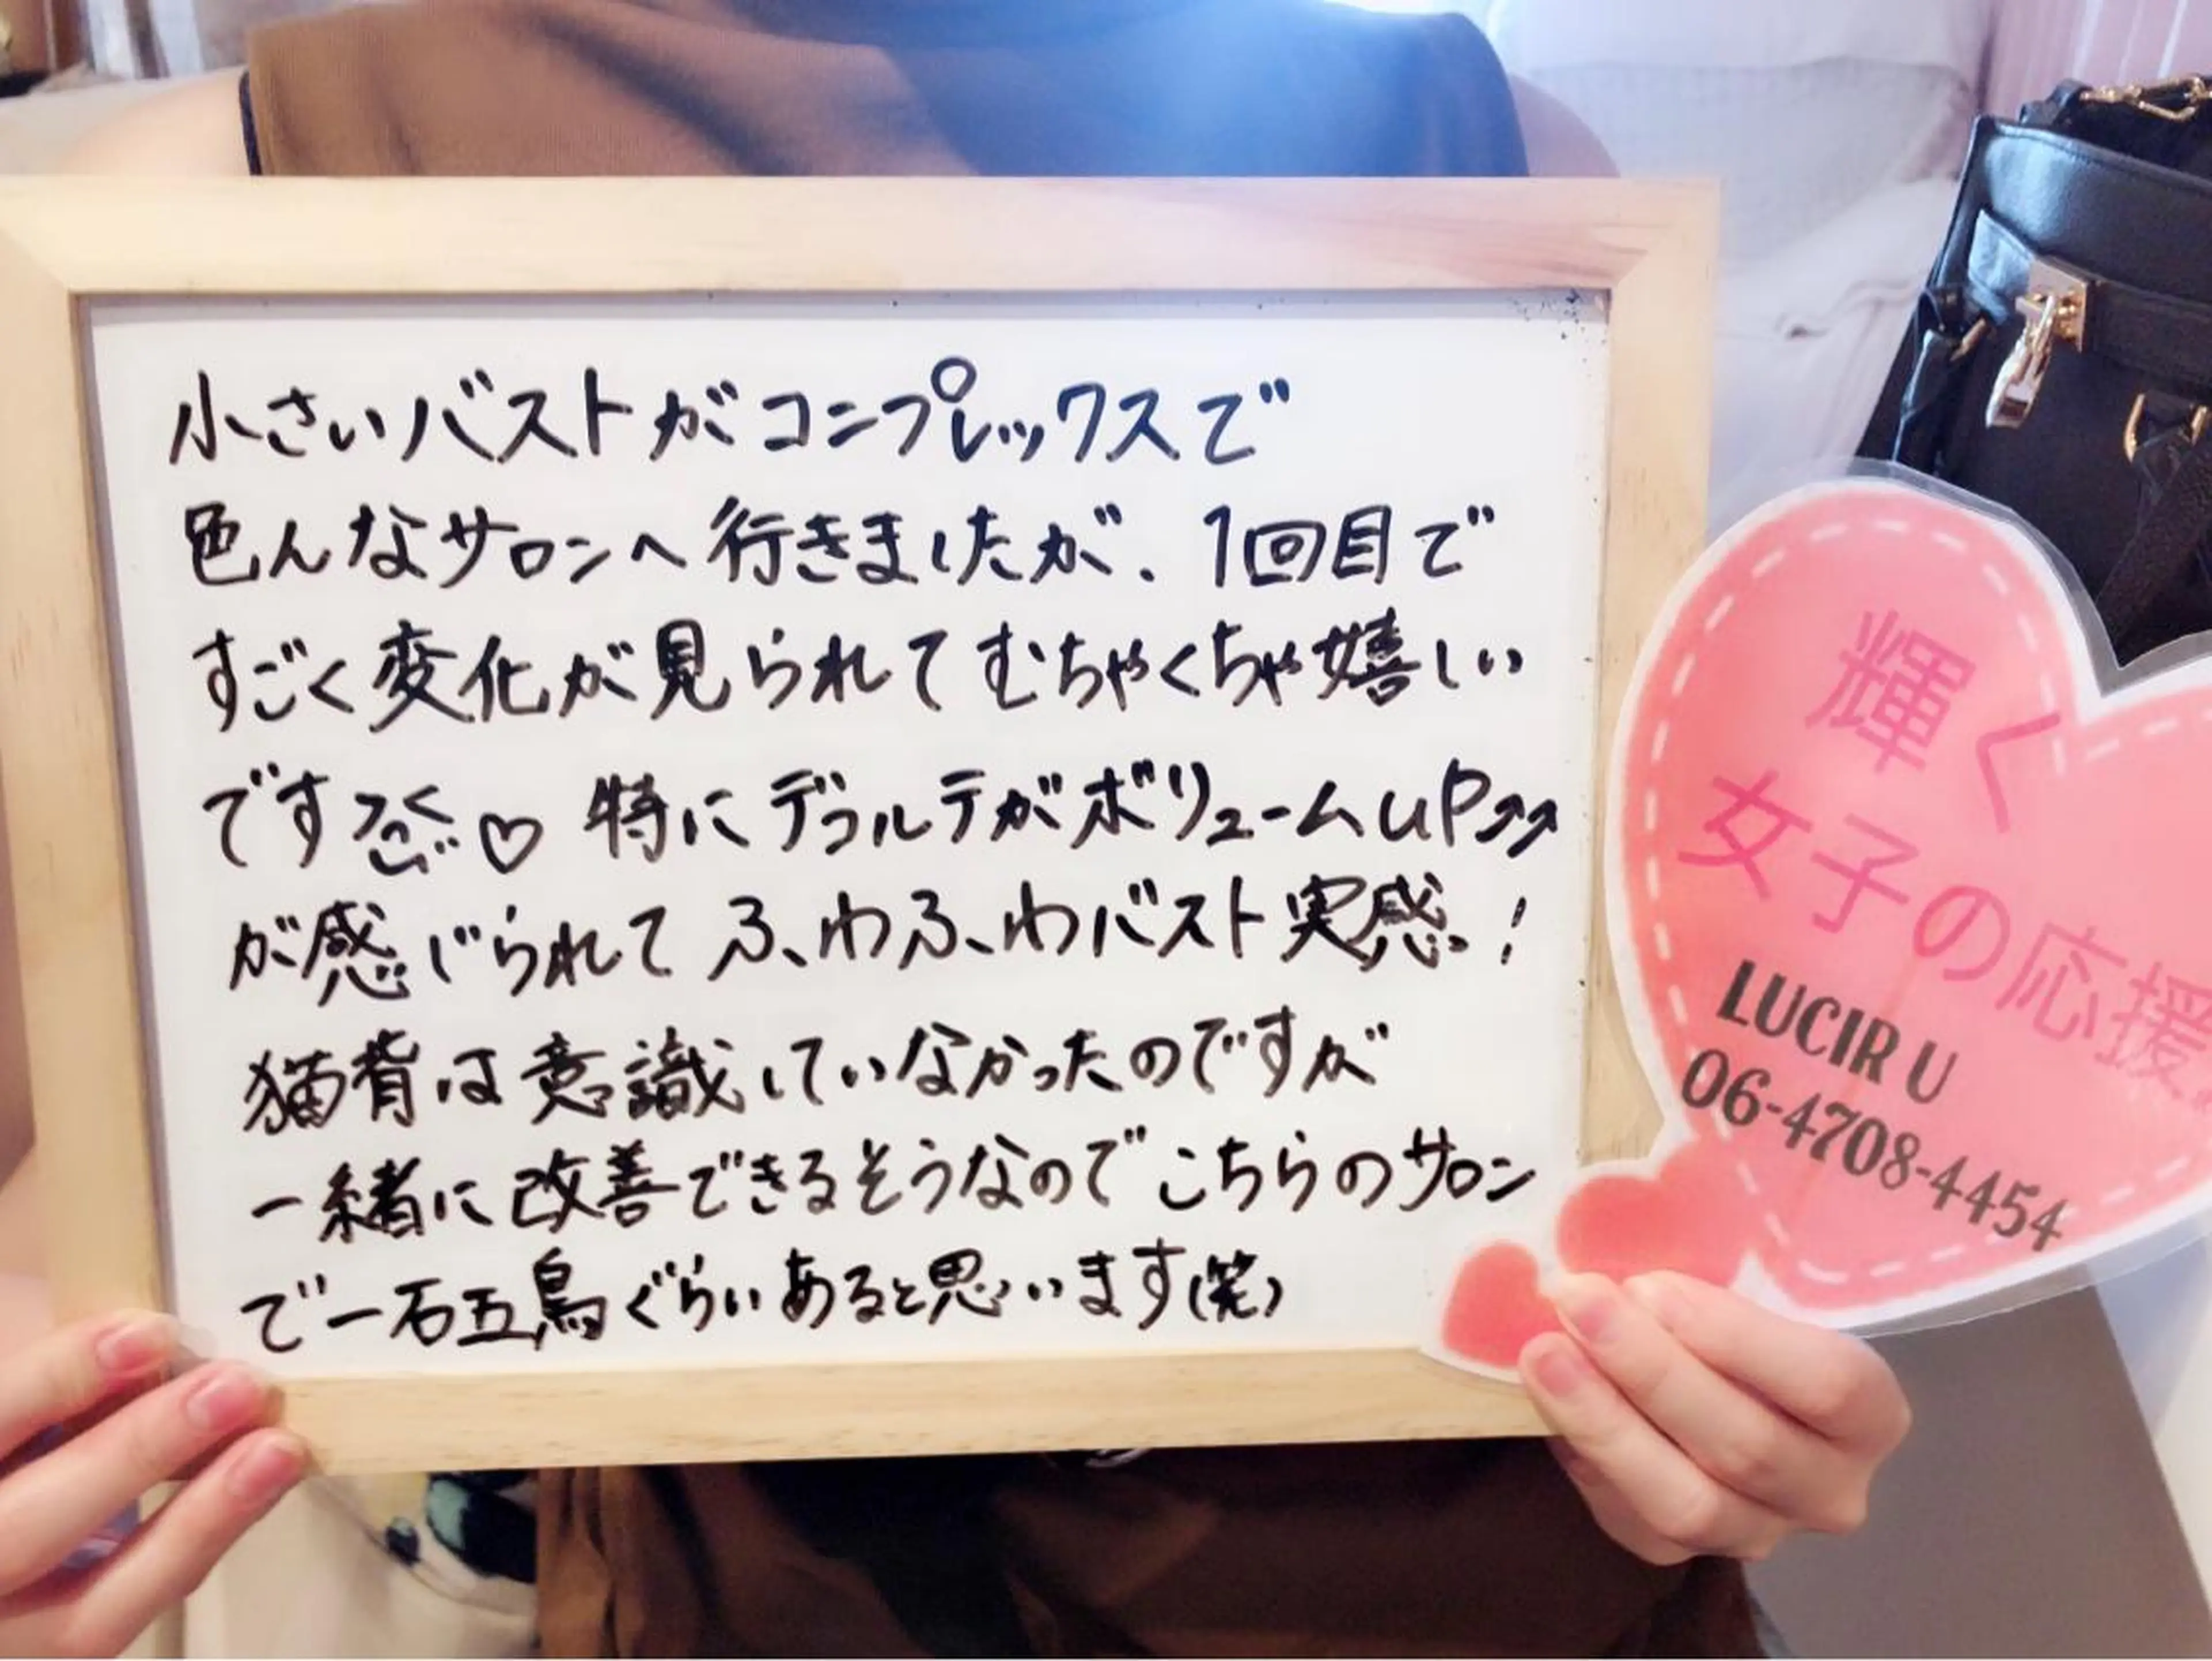 小さいバストがコンプレックスで
色んなサロンへ行きましたが、1回目で
すごく変化が見られてむちゃくちゃ嬉しい
です♡ 特にデコルテがボリュームuP↗↗
が感じられてふわふわバスト実感!
猫背は意識していなかったのですが
一緒に改善できるそうなのでこちらのサロン
で一石五鳥ぐらいあると思います(笑)
輝く
女子の応援
LUCIR U
06-4708-4454